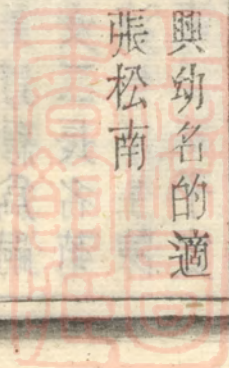 興幼名的適
張松南